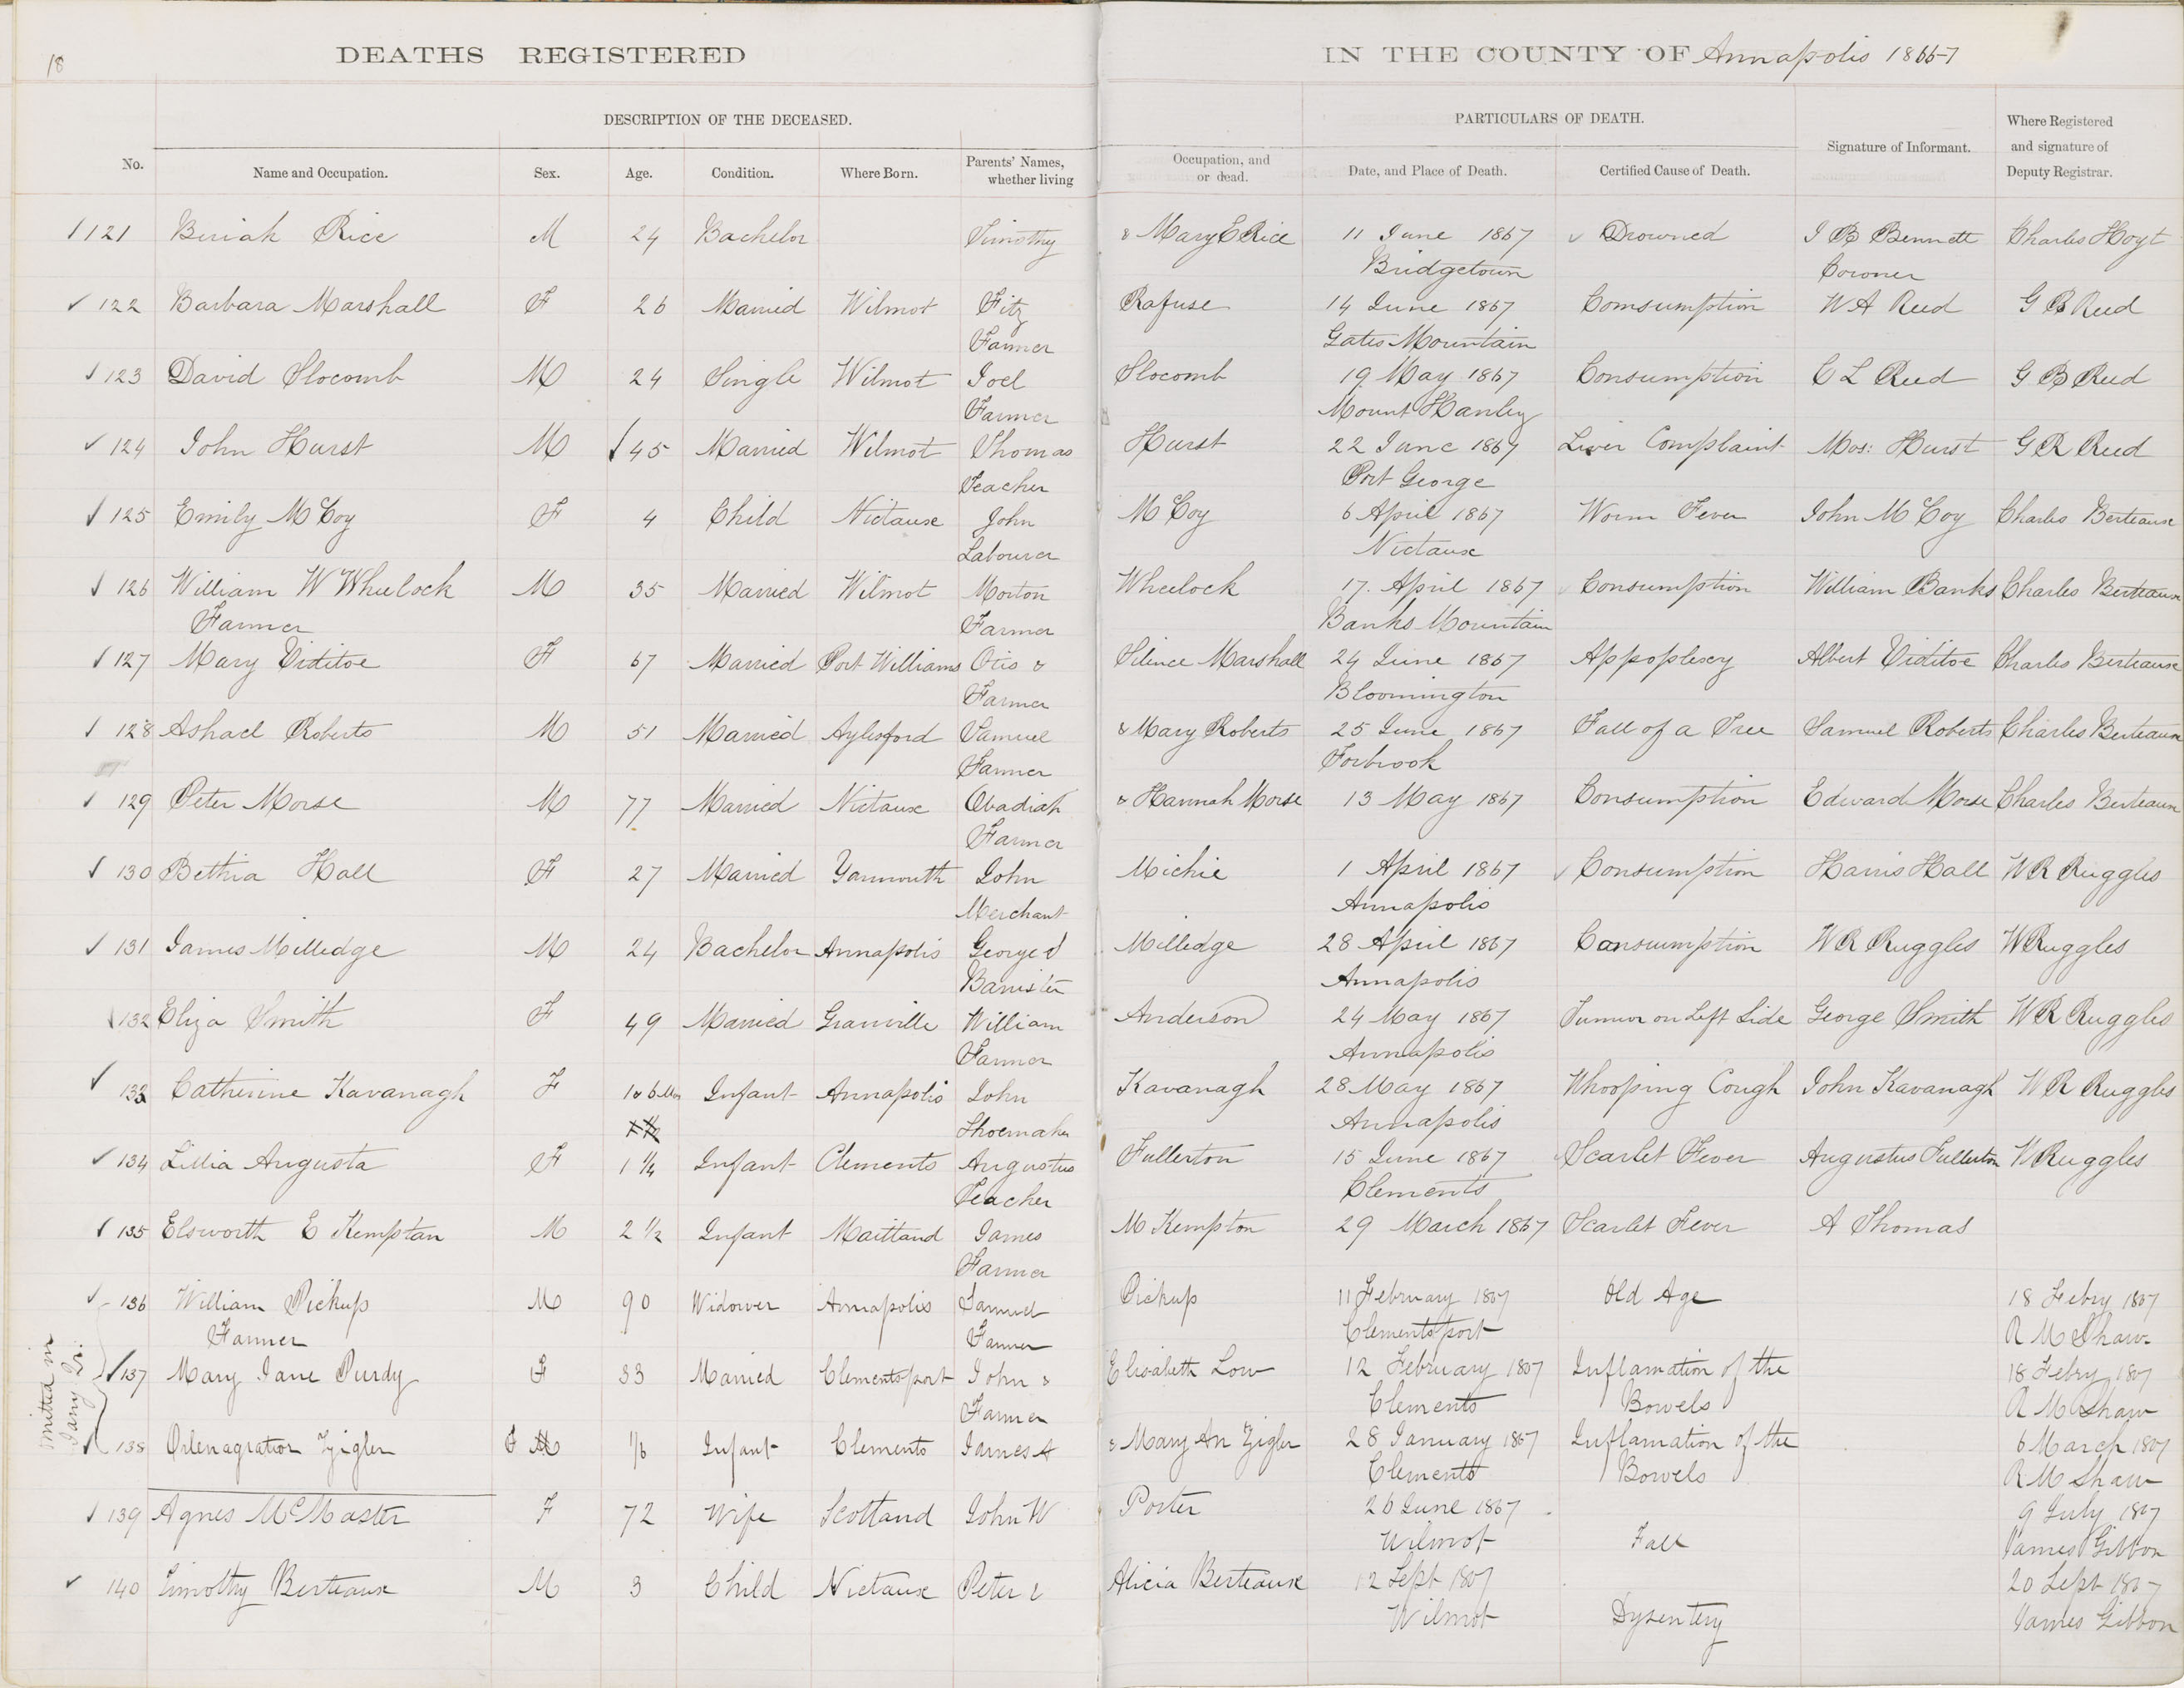 18
DEATHS REGISTERED IN THE COUNTY OF Annapolis 1866-7
DESCRIPTION OF THE DECEASED. PARTICULARS OF DEATH.
No. Name and Occupation. Sex. Age. Condition. Where Born. Parents' Names, whether living Occupation, and or dead. Date, and Place of Death. Certified Cause of Death. Signature of Informant. Where Registered and signature of Deputy Registrar.
121 Beriah Rice M 24 Bachelor Timothy & Mary E Rice 11 June 1867 Drowned I B Bennett Charles Hoyt
Bridgetown Coroner
122 Barbara Marshall F 26 Married Wilmot Fitz Rafuse 14 June 1867 Comsumption W A Reed G B Reed
Farmer Gates Mountain
123 David Slocomb M 24 Single Wilmot Joel Slocomb 19 May 1867 Consumption C L Reed G B Reed
Farmer Mount Hanley
124 John Hurst M 45 Married Wilmot Thomas Hurst 22 June 1867 Liver Complaint Mos: Hurst G R Reed
Teacher Port George
125 Emily McCoy F 4 Child Nictaux John McCoy 6 April 1867 Worm Fever John McCoy Charles Berteaux
Labourer Nictaux
126 William W Wheelock M 35 Married Wilmot Morton Wheelock 17. April 1867 Consumption William Banks Charles Berteaux
Farmer Farmer Banks Mountain
127 Mary Viditoe F 67 Married Port Williams Otis & Silence Marshall 24 June 1867 Appoplexy Albert Viditoe Charles Berteaux
Farmer Bloomington
128 Ashael Roberts M 51 Married Aylesford Samuel & Mary Roberts 25 June 1867 Fall of a Tree Samuel Roberts Charles Berteaux
Farmer Forbrook
129 Peter Morse M 77 Married Nictaux Obadiah & Hannah Morse 13 May 1867 Consumption Edward Morse Charles Berteaux
Farmer
130 Bethia Hall F 27 Married Yarmouth John Michie 1 April 1867 Consumption Harris Hall W R Ruggles
Merchant Annapolis
131 James Milledge M 24 Bachelor Annapolis George Milledge 28 April 1867 Consumption W R Ruggles W Ruggles
Barrister Annapolis
132 Eliza Smith F 49 Married Granville William Anderson 24 May 1867 Tumor on Left Side George Smith W R Ruggles
Farmer Annapolis
133 Catherine Kavanagh F 1 & 6 Mos Infant Annapolis John Kavanagh 28 May 1867 Whooping Cough John Kavanagh W R Ruggles
Shoemaker Annapolis
134 Lillia Augusta F 1 1/4 Infant Clements Augustus Fullerton 15 June 1867 Scarlet Fever Augustus Fullerton W Ruggles
Teacher Clements
135 Elsworth E Kemptan M 2 1/2 Infant Maitland James M Kempton 29 March 1867 Scarlet Fever A Thomas
Farmer
136 William Pickup M 90 Widower Annapolis Samuel Pickup 11 February 1867 Old Age 18 Febry 1867
Farmer Farmer Clementsport R M Shaw
137 Mary Jane Purdy F 33 Married Clementsport John & Elisabeth Low 12 February 1867 Inflamation of the 18 Febry 1867
Farmer Clements Bowels R M Shaw
mitted in
Jany Qr.
138 Zigler F 1/6 Infant Clements James A & Mary An Zigler 28 January 1867 Inflamation of the 6 March 1867
Clements Bowels R M Shaw
139 Agnes McMaster F 72 Wife Scotland John W Porter 26 June 1867 9 July 1867
Wilmot Fall James Gibbon
140 Timothy Berteaux M 3 Child Nictaux Peter & Alicia Berteaux 12 Sept 1867 20 Sept 1867
Wilmot Dysentery James Gibbon